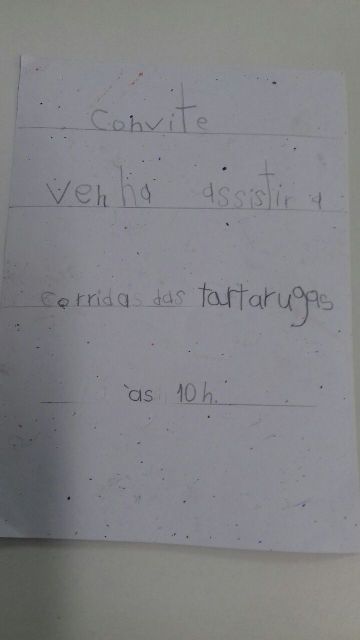 Convite
Venha assistir a
corridas das tartarugas
às 10 h.